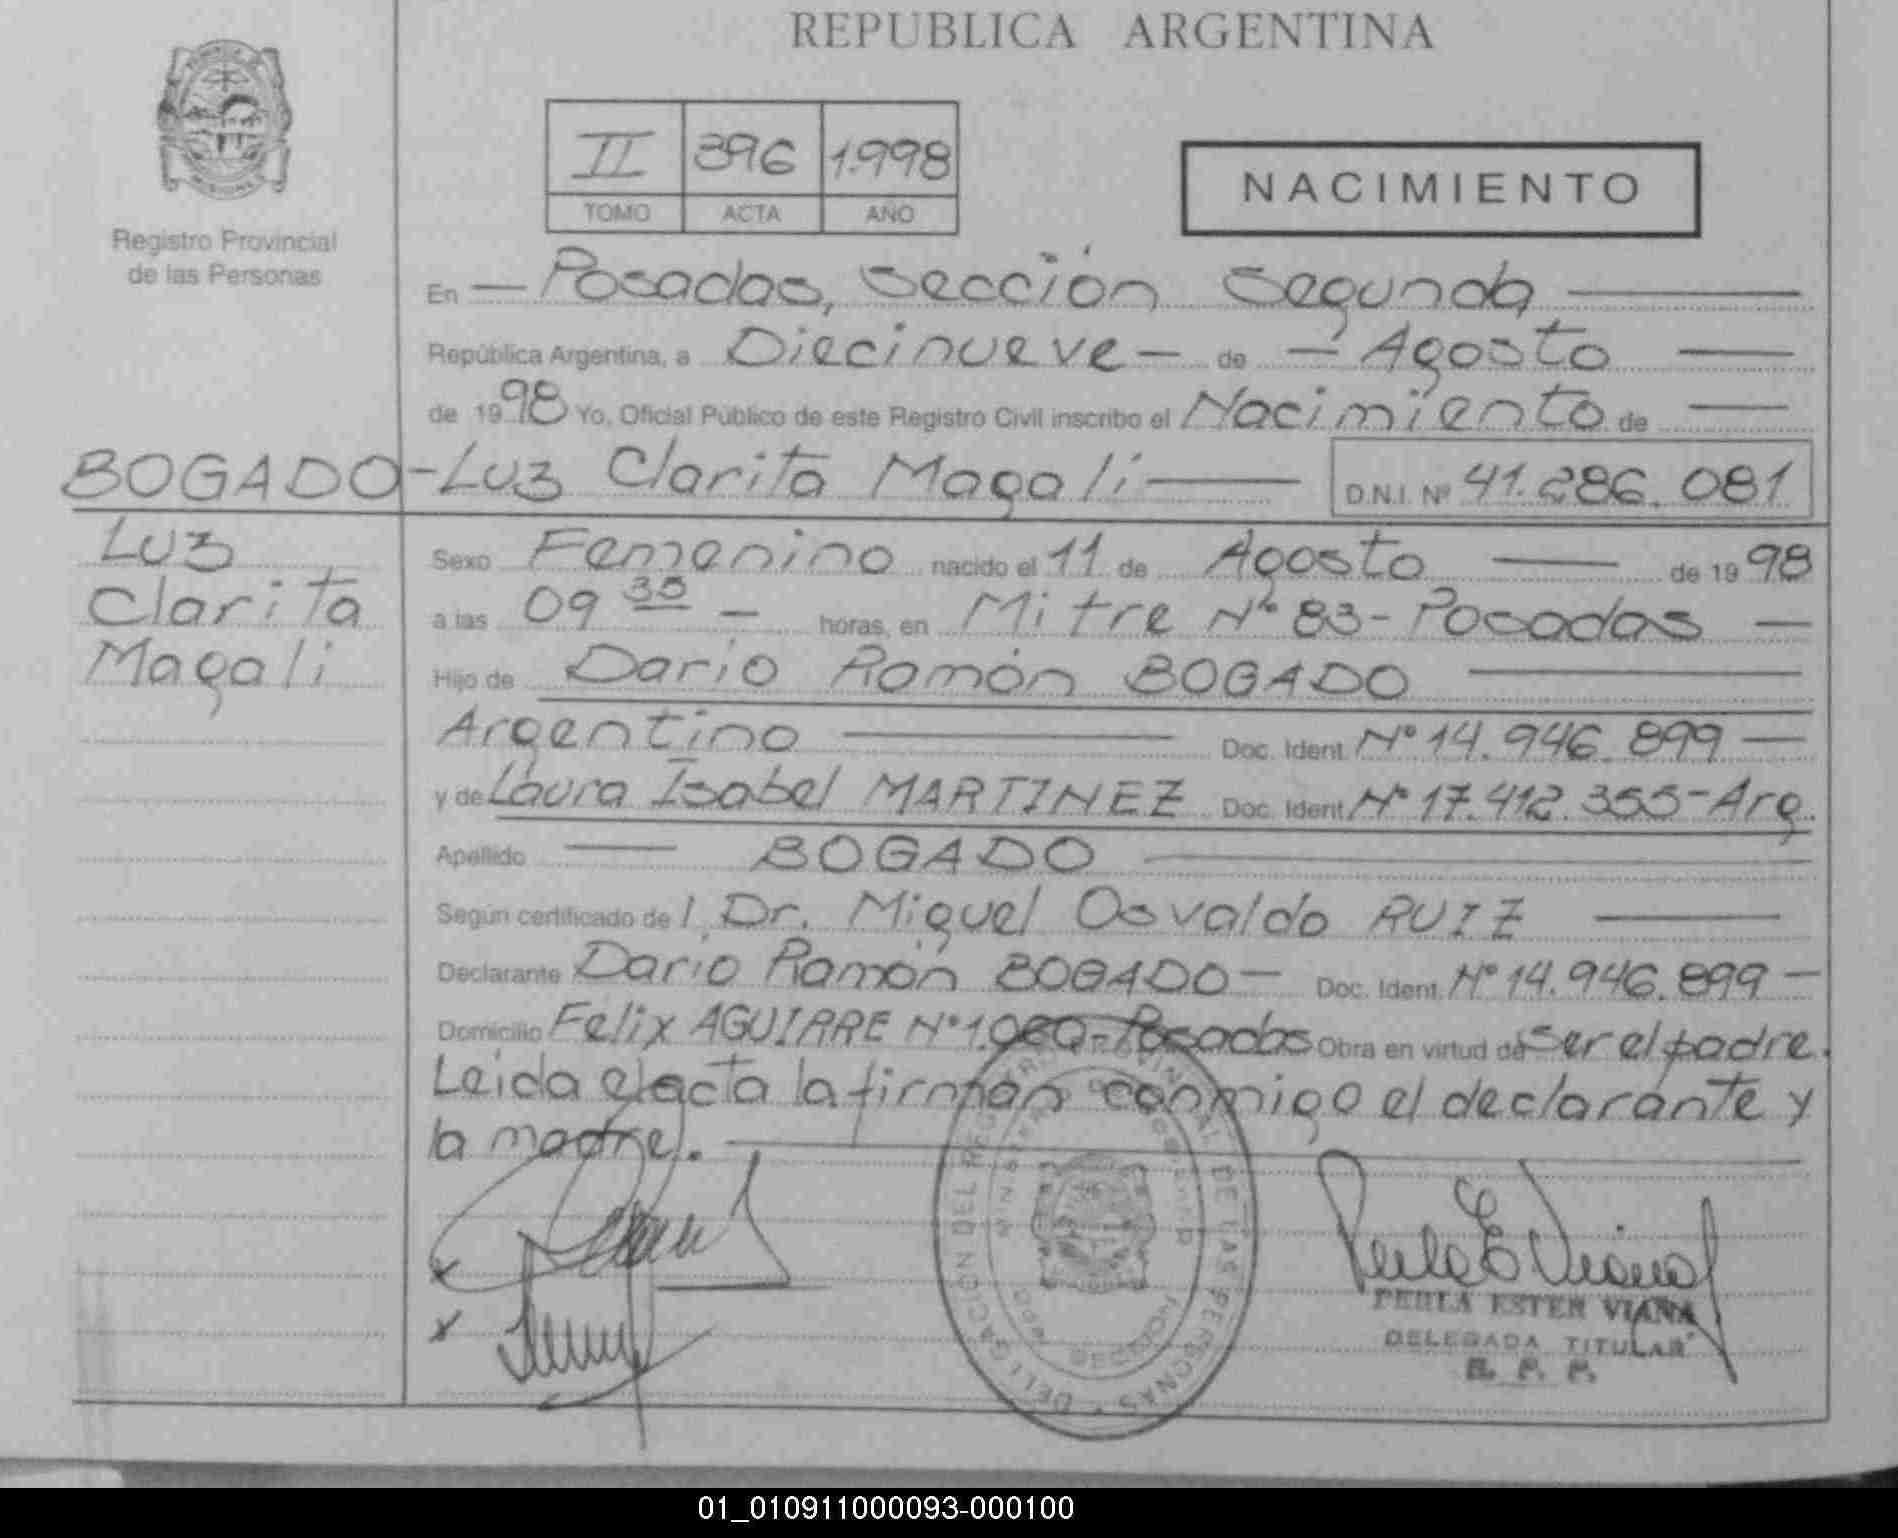 REPUBLICA ARGENTINA
II 396 1.998
TOMO ACTA AÑO
NACIMIENTO
Registro Provincial
de las Personas
En — Posadas, Sección Segunda —
República Argentina, a Diecinueve — de — Agosto —
de 1998 Yo, Oficial Público de este Registro Civil inscribo el Nacimiento de —
BOGADO - Luz Clarita Magali — D.N.I. Nº 41.286.081
Luz
Clarita
Magali
Sexo Femenino nacido el 11 de Agosto — de 1998
a las 09 35 — horas, en Mitre Nº 83 - Posadas —
Hijo de Dario Ramón BOGADO —
Argentino — Doc. Ident. Nº 14.946.899 —
y de Laura Isabel MARTINEZ Doc. Ident. Nº 17.412.355 - Arg.
Apellido — BOGADO —
Según certificado de l Dr. Miguel Osvaldo RUIZ —
Declarante Dario Ramón BOGADO — Doc. Ident. Nº 14.946.899 —
Domicilio Felix AGUIRRE Nº - Posadas Obra en virtud de ser el padre.
Leida el acta la firman conmigo el declarante y
la madre. —
DELEGACIÓN DEL REGISTRO PROVINCIAL DE LAS PERSONAS
PERLA ESTER VIANA
DELEGADA TITULAR
R. P. P.
01_010911000093-000100